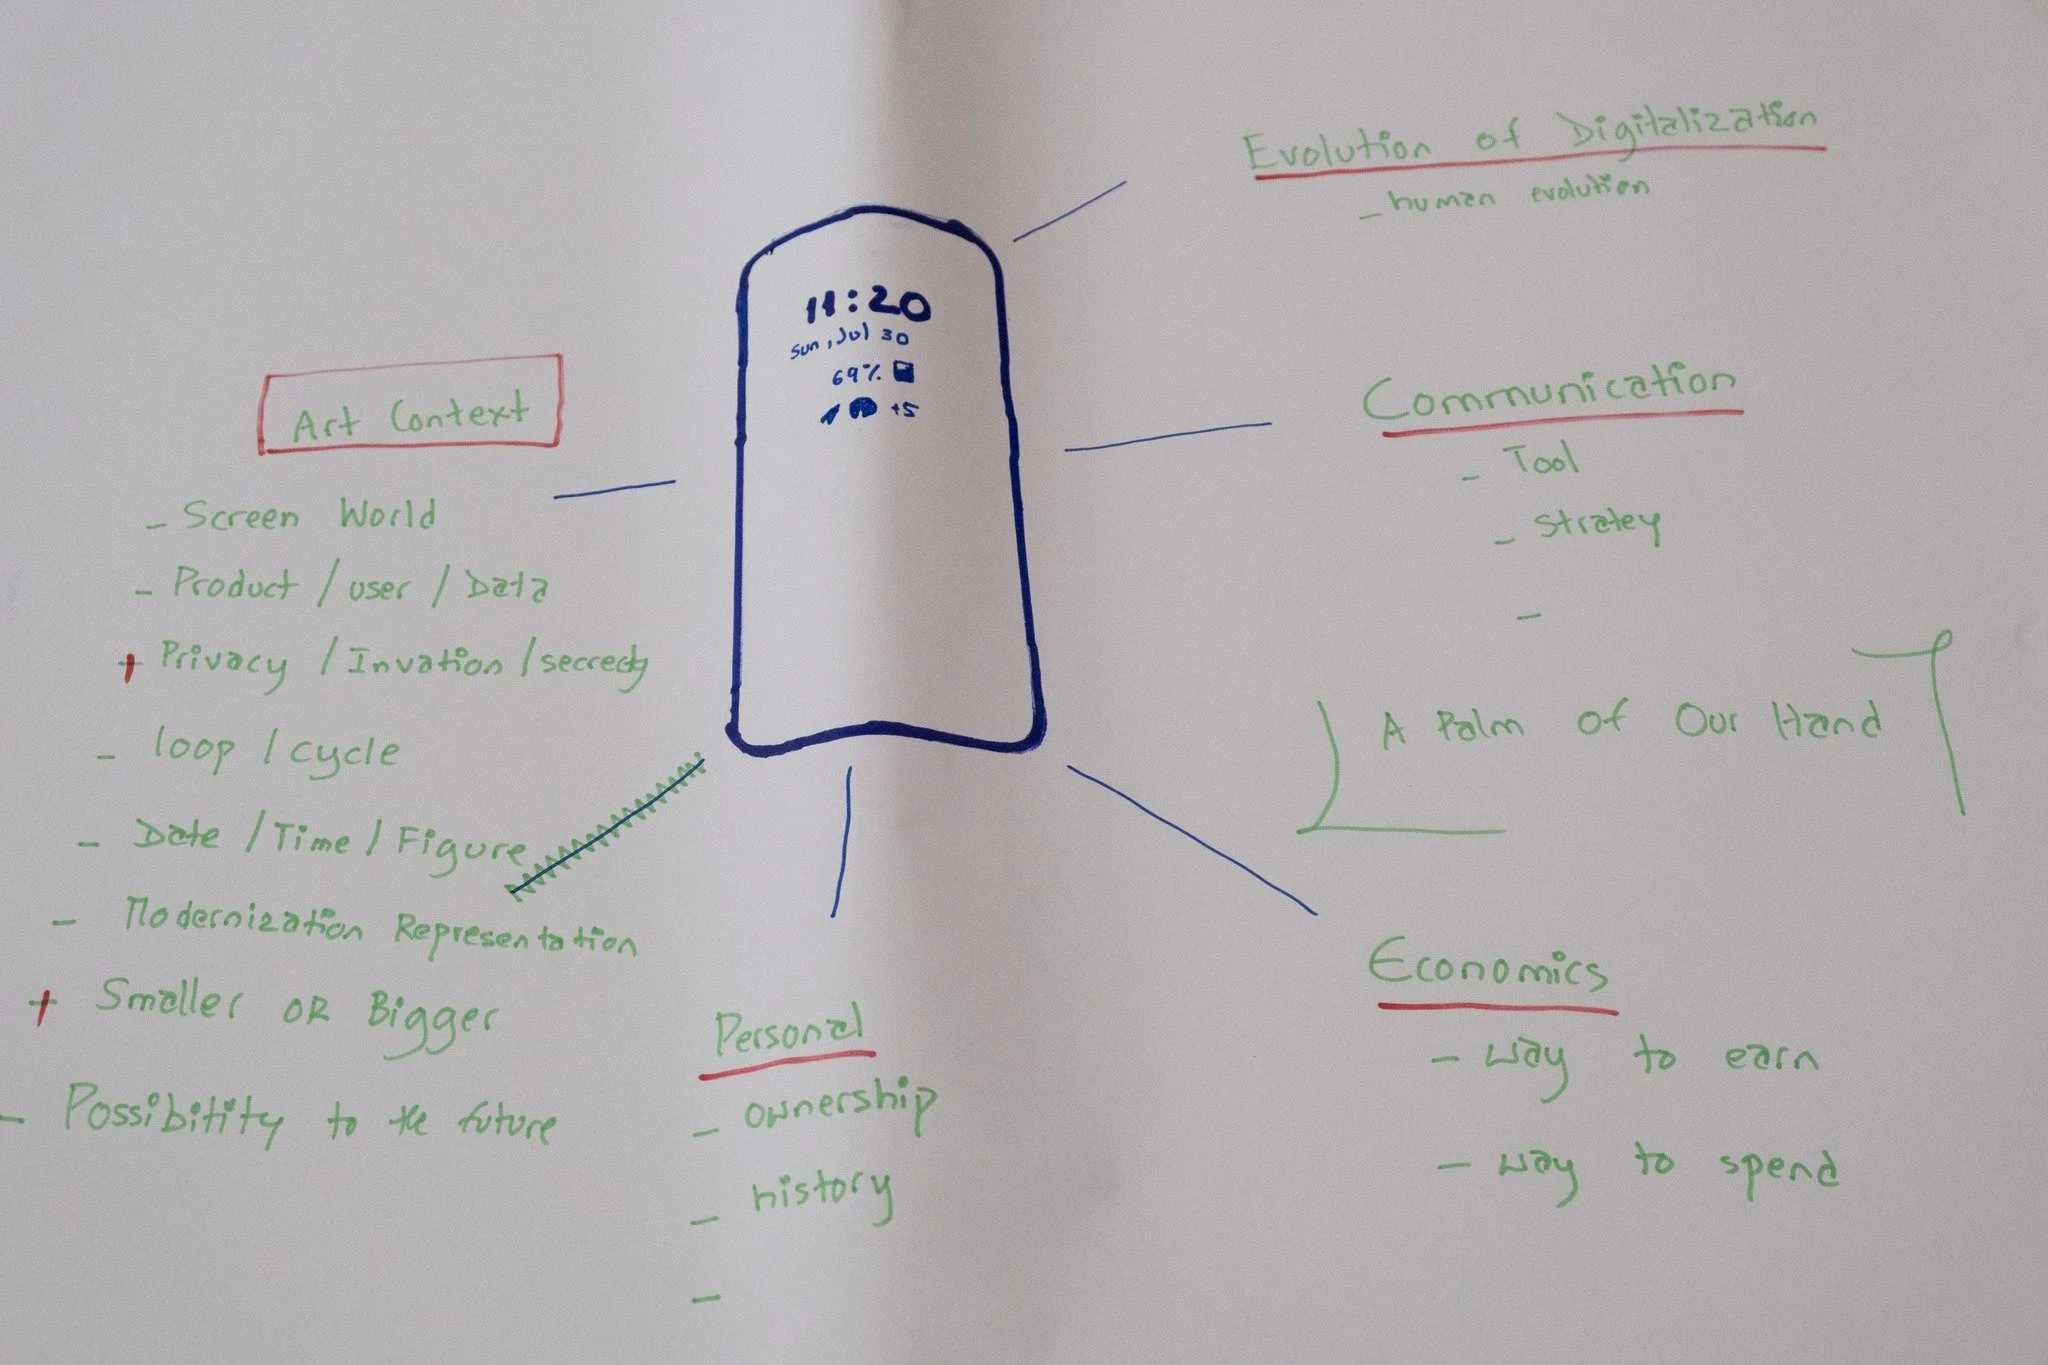 Evolution of Digitalization
- human evolution
11:20
Sun, Jul 30
69%
+5
Art Context
- Screen World
- Product / user / Data
+ Privacy / Invation / secrecy
- loop / cycle
- Date / Time / Figure
- Modernization Representation
+ Smaller OR Bigger
- Possibitity to the future
Communication
- Tool
- stratey
-
A Palm of Our Hand
Personal
- ownership
- history
-
Economics
- way to earn
- way to spend